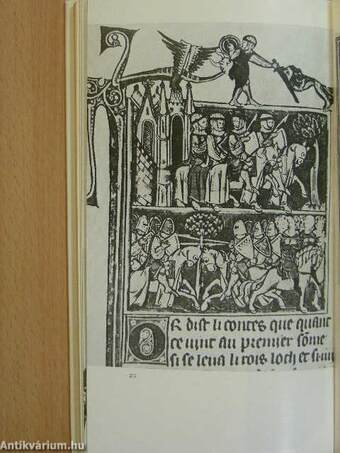 OR dist li contes que quant
ce vint au premier some
si se leva li rois loth et
22
Antikvárium.hu